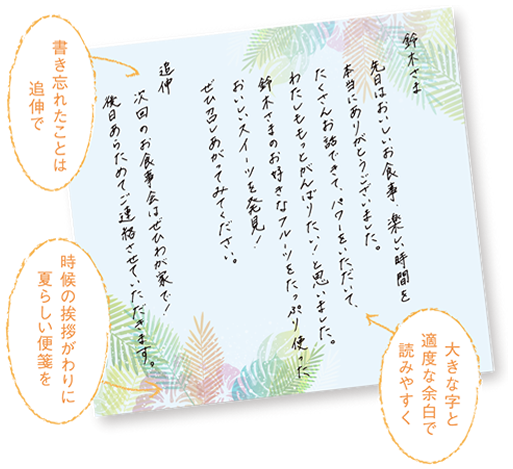 鈴木さま
先日はおいしいお食事、楽しい時間を
本当にありがとうございました。
たくさんお話できて、パワーをいただいて、
わたしももっとがんばりたい！と思いました。
鈴木さまのお好きなフルーツをたっぷり使った
おいしいスイーツを発見！
ぜひ召しあがってみてください。
追伸
次回のお食事会はぜひわが家で！
後日あらためてご連絡させていただきます。
書き忘れたことは
追伸で
時候の挨拶がわりに
夏らしい便箋を
大きな字と
適度な余白で
読みやすく